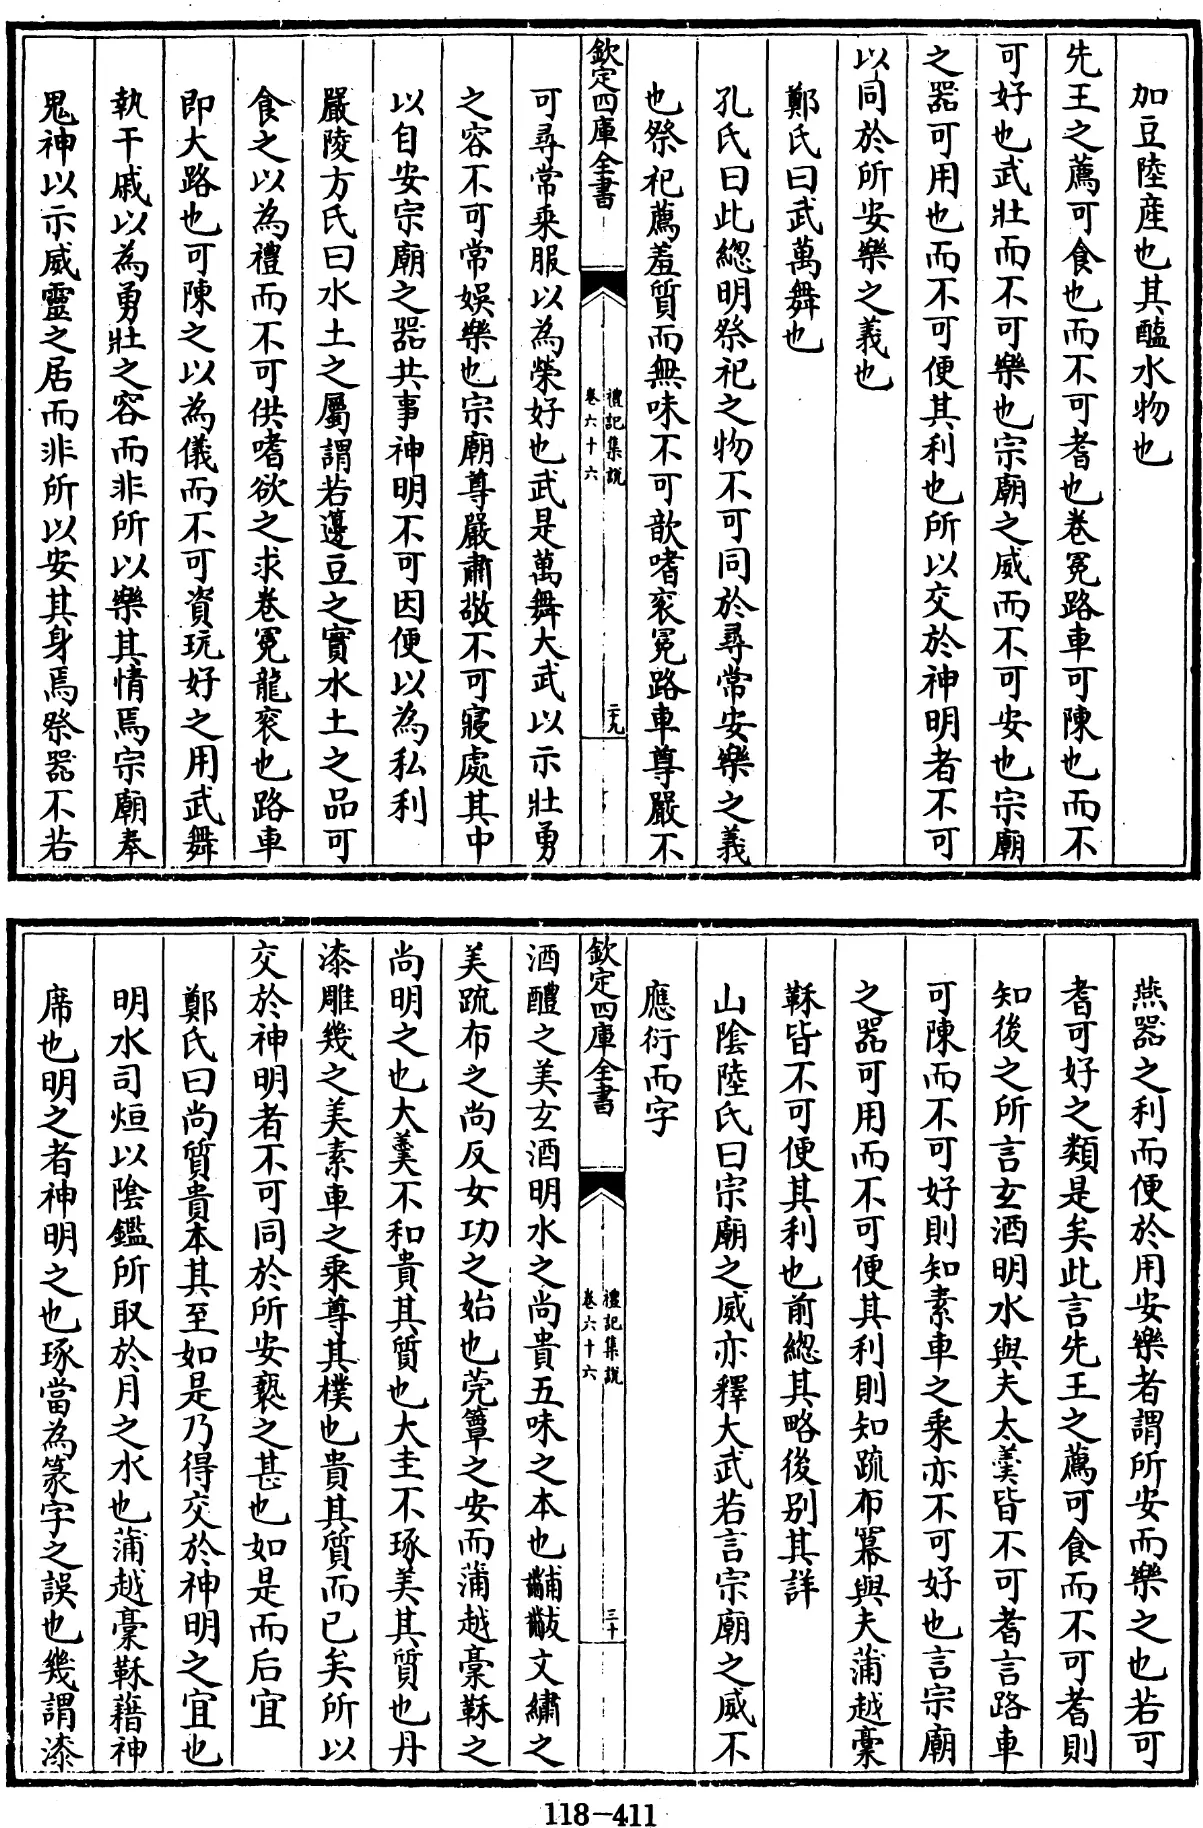 加豆陸産也其醢水物也
先王之薦可食也而不可耆也卷冕路車可陳也而不
可好也武壯而不可樂也宗廟之威而不可安也宗廟
之器可用也而不可便其利也所以交於神明者不可
以同於所安樂之義也
鄭氏曰武萬舞也
孔氏曰此總明祭祀之物不可同於尋常安樂之義
也祭祀薦羞質而無味不可歆嗜衮冕路車尊嚴不
欽定四庫全書
禮記集說
卷六十六
二十九
可尋常乘服以為榮好也武是萬舞大武以示壯勇
之容不可常娛樂也宗廟尊嚴肅敬不可寢處其中
以自安宗廟之器共事神明不可因便以為私利
嚴陵方氏曰水土之屬謂若籩豆之實水土之品可
食之以為禮而不可供嗜欲之求卷冕龍衮也路車
即大路也可陳之以為儀而不可資玩好之用武舞
執干戚以為勇壯之容而非所以樂其情焉宗廟奉
鬼神以示威靈之居而非所以安其身焉祭器不若
燕器之利而便於用安樂者謂所安而樂之也若可
耆可好之類是矣此言先王之薦可食而不可耆則
知後之所言玄酒明水與夫太羹皆不可耆言路車
可陳而不可好則知素車之乘亦不可好也言宗廟
之器可用而不可便其利則知疏布冪與夫蒲越槀
鞂皆不可便其利也前總其略後别其詳
山陰陸氏曰宗廟之威亦釋大武若言宗廟之威不
應衍而字
欽定四庫全書
禮記集說
卷六十六
三十
酒醴之美玄酒明水之尚貴五味之本也黼黻文繡之
美疏布之尚反女功之始也莞簟之安而蒲越槀鞂之
尚明之也大羹不和貴其質也大圭不琢美其質也丹
漆雕幾之美素車之乘尊其樸也貴其質而已矣所以
交於神明者不可同於所安褻之甚也如是而后宜
鄭氏曰尚質貴本其至如是乃得交於神明之宜也
明水司烜以陰鑑所取於月之水也蒲越槀鞂藉神
席也明之者神明之也琢當為篆字之誤也幾謂漆
118-411